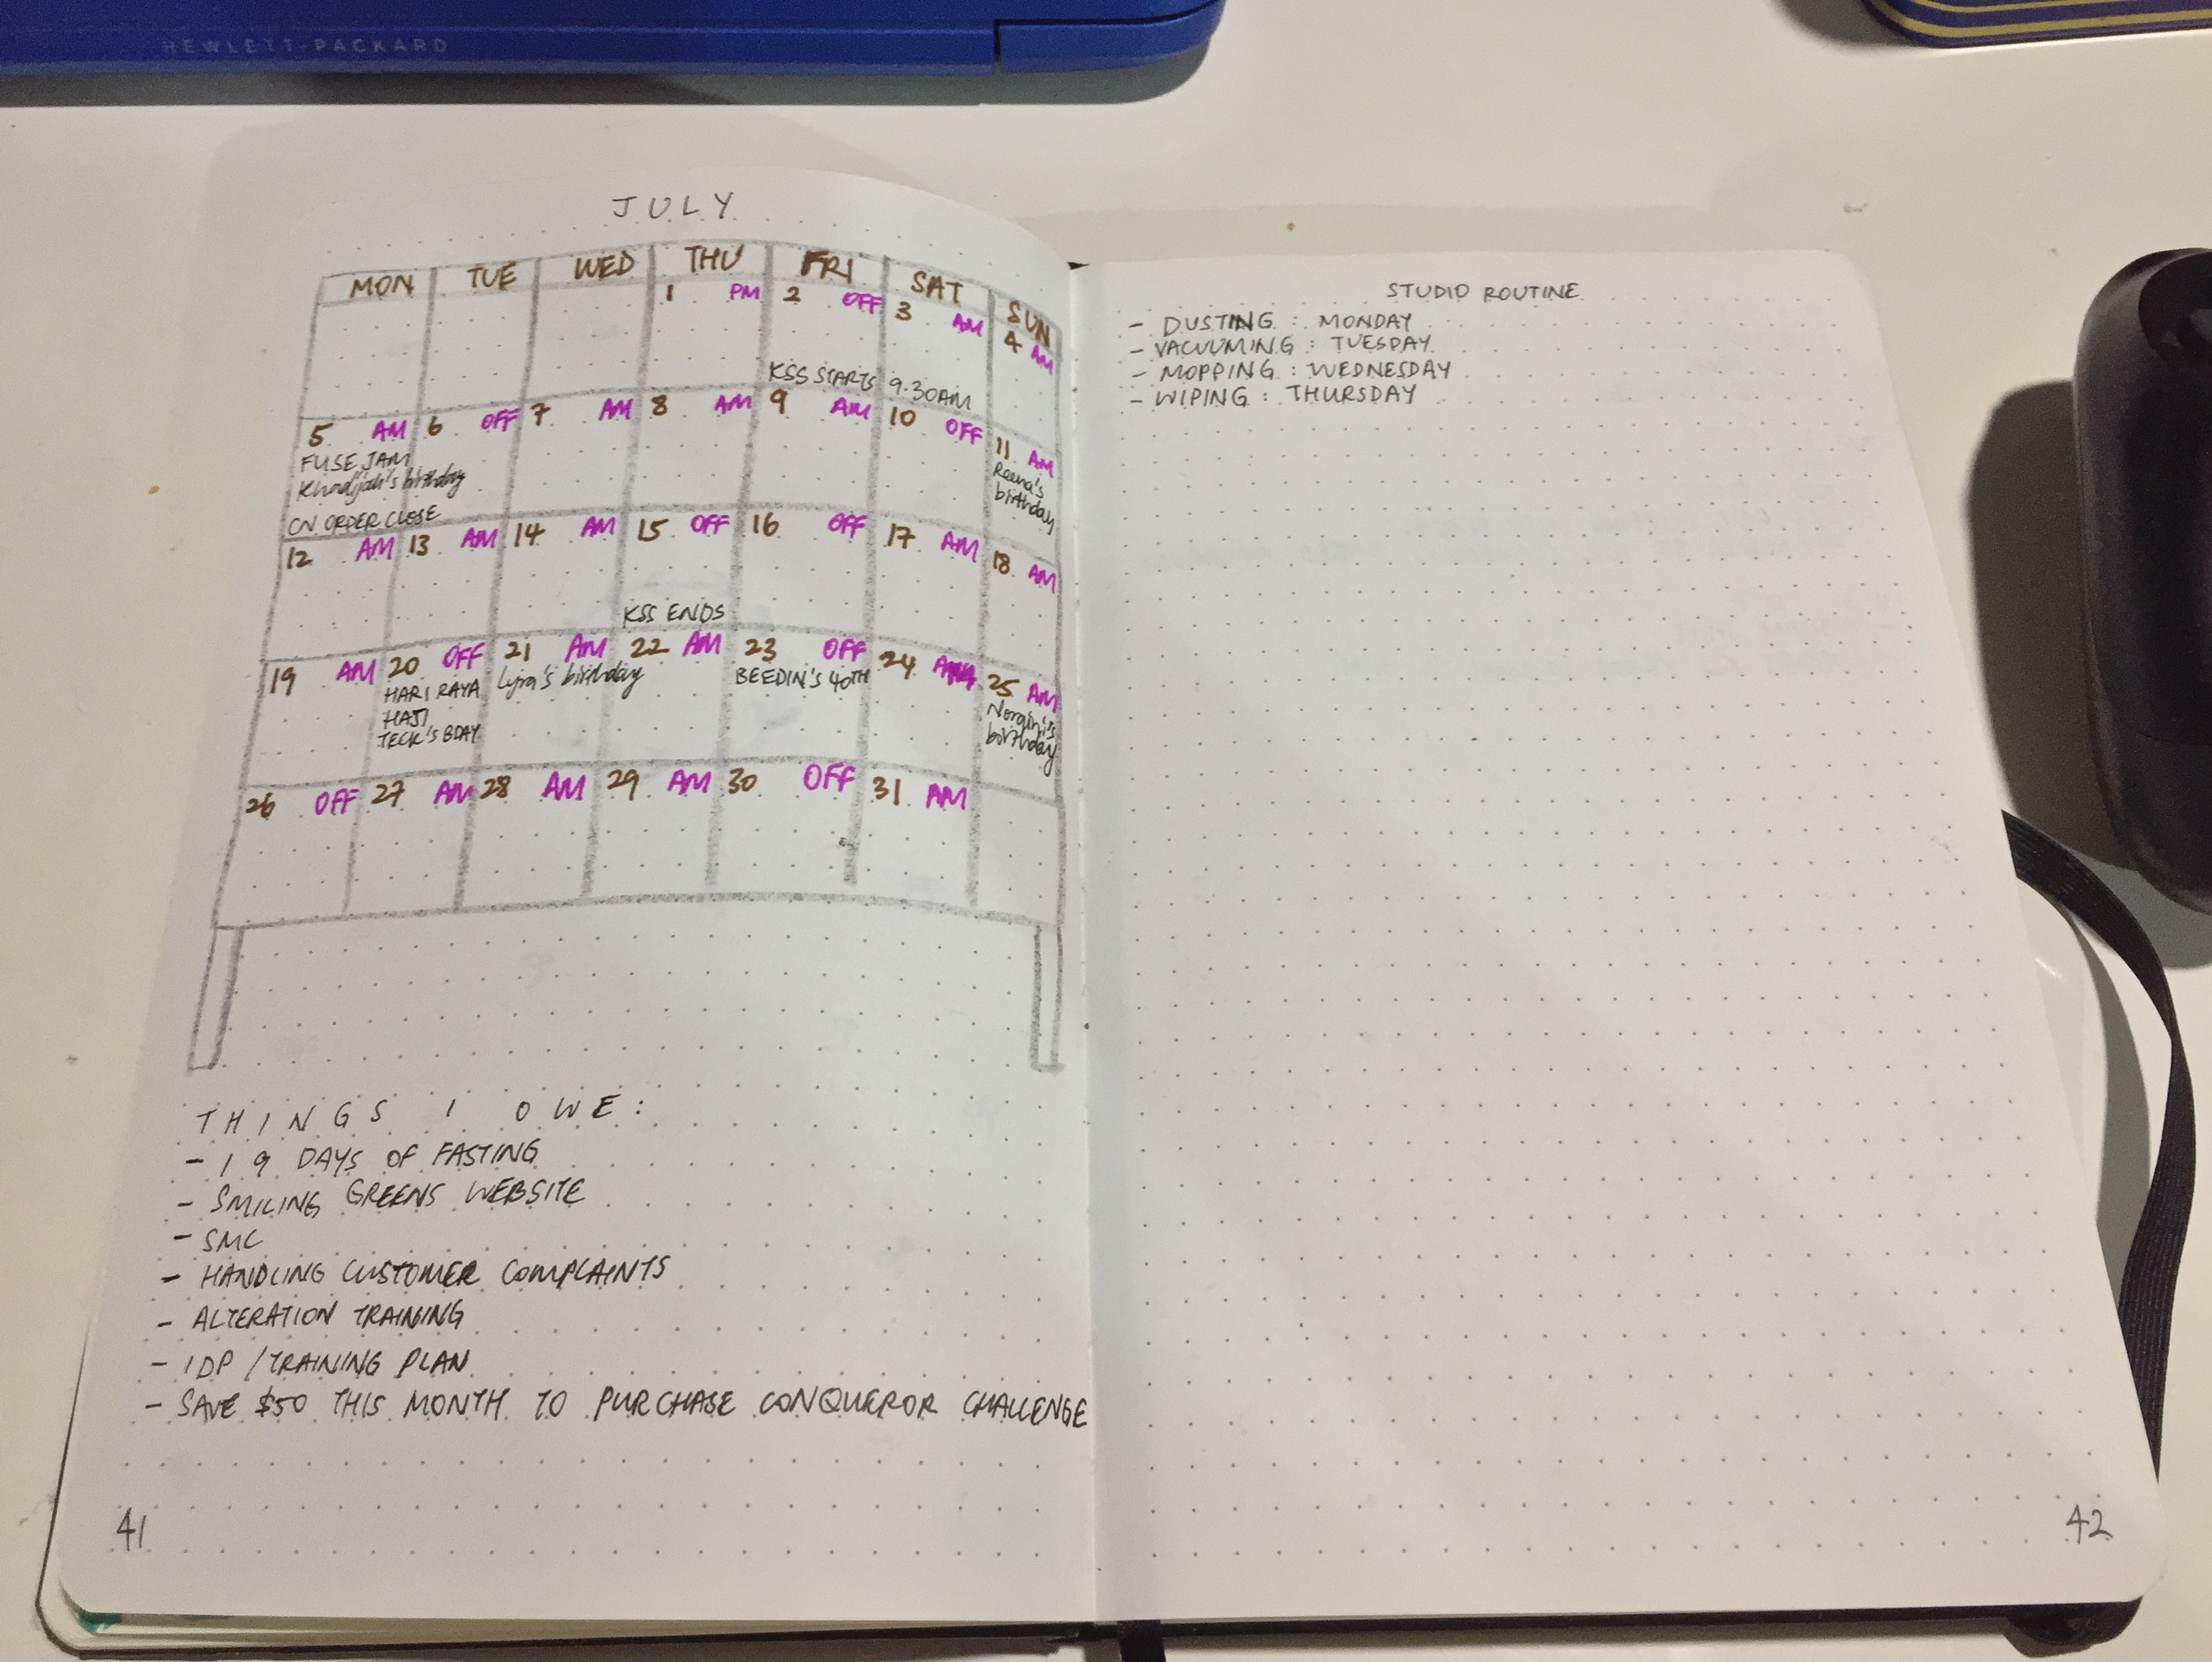 HEWLETT-PACKARD
JULY
MON TUE WED THU FRI SAT SUN
1 PM 2 OFF 3 AM 4 AM
KSS STARTS 9.30AM
5 AM 6 OFF 7 AM 8 AM 9 AM 10 OFF 11 AM
FUSE JAM
Khadijah's birthday
Reena's
birthday
CN ORDER CLOSE
12 AM 13 AM 14 AM 15 OFF 16 OFF 17 AM 18 AM
KSS ENDS
19 AM 20 OFF 21 AM 22 AM 23 OFF 24 AM 25 AM
HARI RAYA
HAJI
TECK'S BDAY
Lyra's birthday
BEEDIN'S 40TH
birthday
26 OFF 27 AM 28 AM 29 AM 30 OFF 31 AM
THINGS I OWE:
- 19 DAYS OF FASTING
- SMILING GREENS WEBSITE
- SMC
- HANDLING CUSTOMER COMPLAINTS
- ALTERATION TRAINING
- IDP / TRAINING PLAN
- SAVE $50 THIS MONTH TO PURCHASE CONQUEROR CHALLENGE
41
STUDIO ROUTINE
- DUSTING : MONDAY
- VACUUMING : TUESDAY
- MOPPING : WEDNESDAY
- WIPING : THURSDAY
42